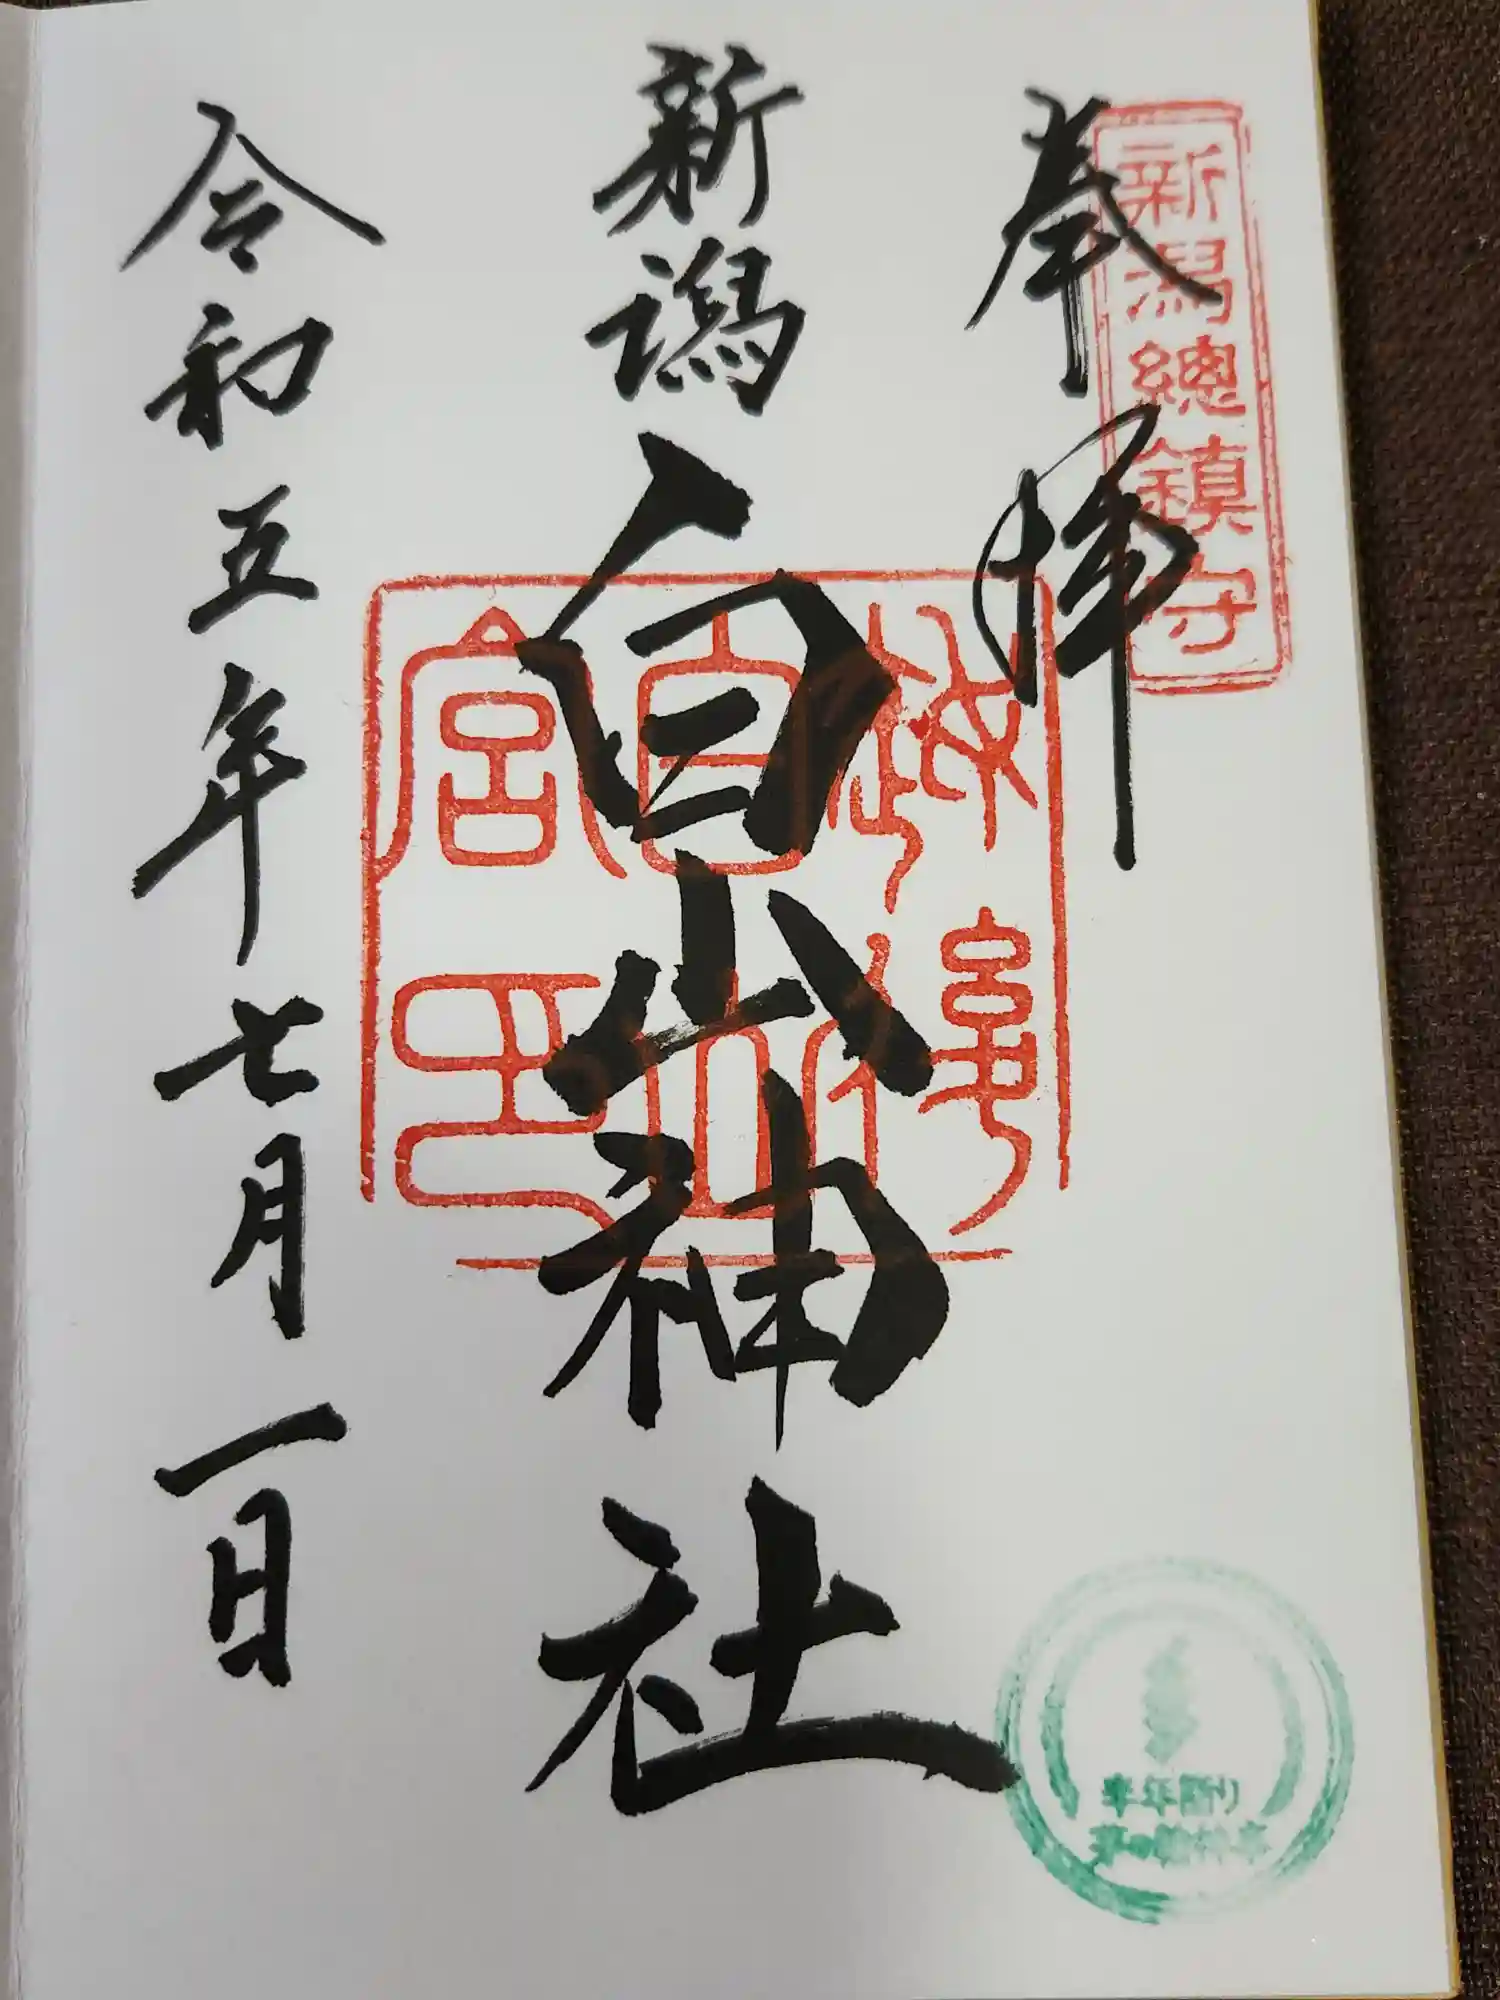 奉拝
新潟總鎮守
新潟
白山神社
越後
白山
宮印
令和五年七月一日
半年祈り
茅の輪神事